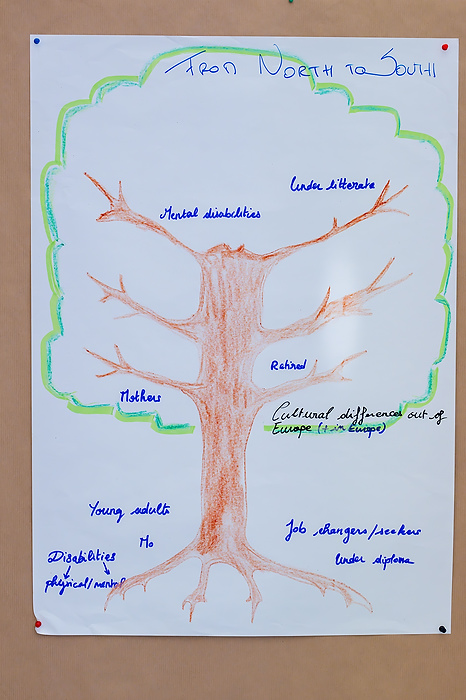 FROM NORTH TO SOUTH
Under litterate
Mental disabilities
Retired
Mothers
Cultural differences out of
Europe (+ in Europe)
Young adults
Job changers/seekers
Mo
Disabilities
Under diploma
physical/mental